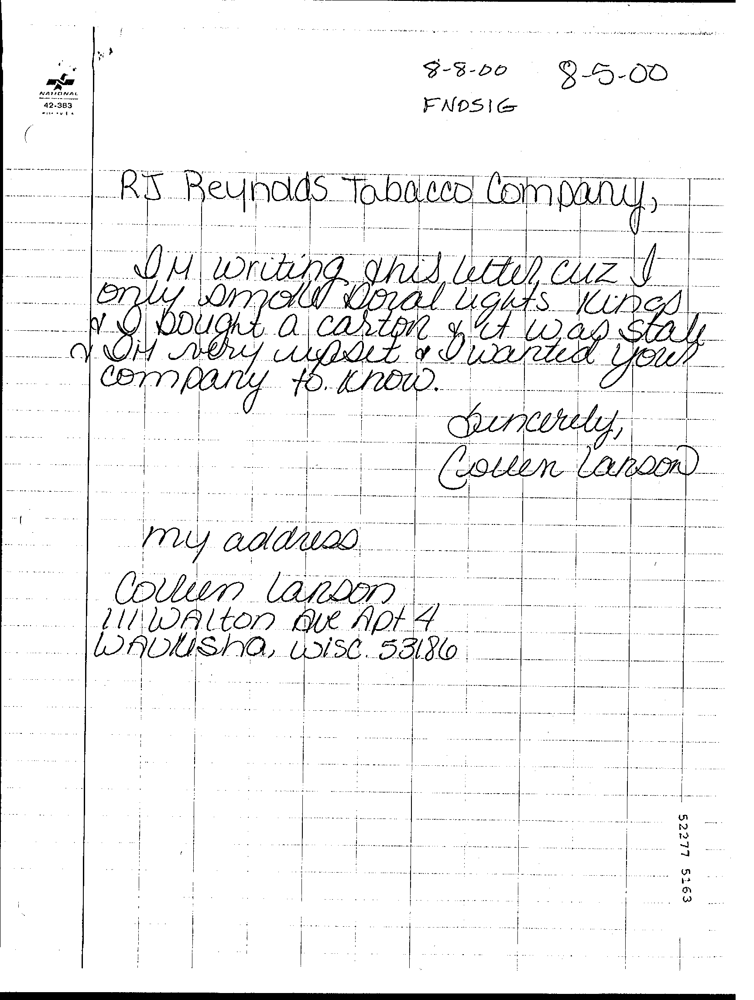 8-8-00 8-5-00
NATIONAL
42-383
FNDSIG
RJ Reynolds Tabacco Company,
I'M writing this letter cuz I
only smoke Doral lights Kings
& I bought a carton & it was stale
& I'M very upset & I wanted your
company to know.
Sincerely,
Colleen Larson
my address
Colleen Larson
111 WAlton Ave Apt 4
WAUKesha, Wisc. 53186
52277 5163